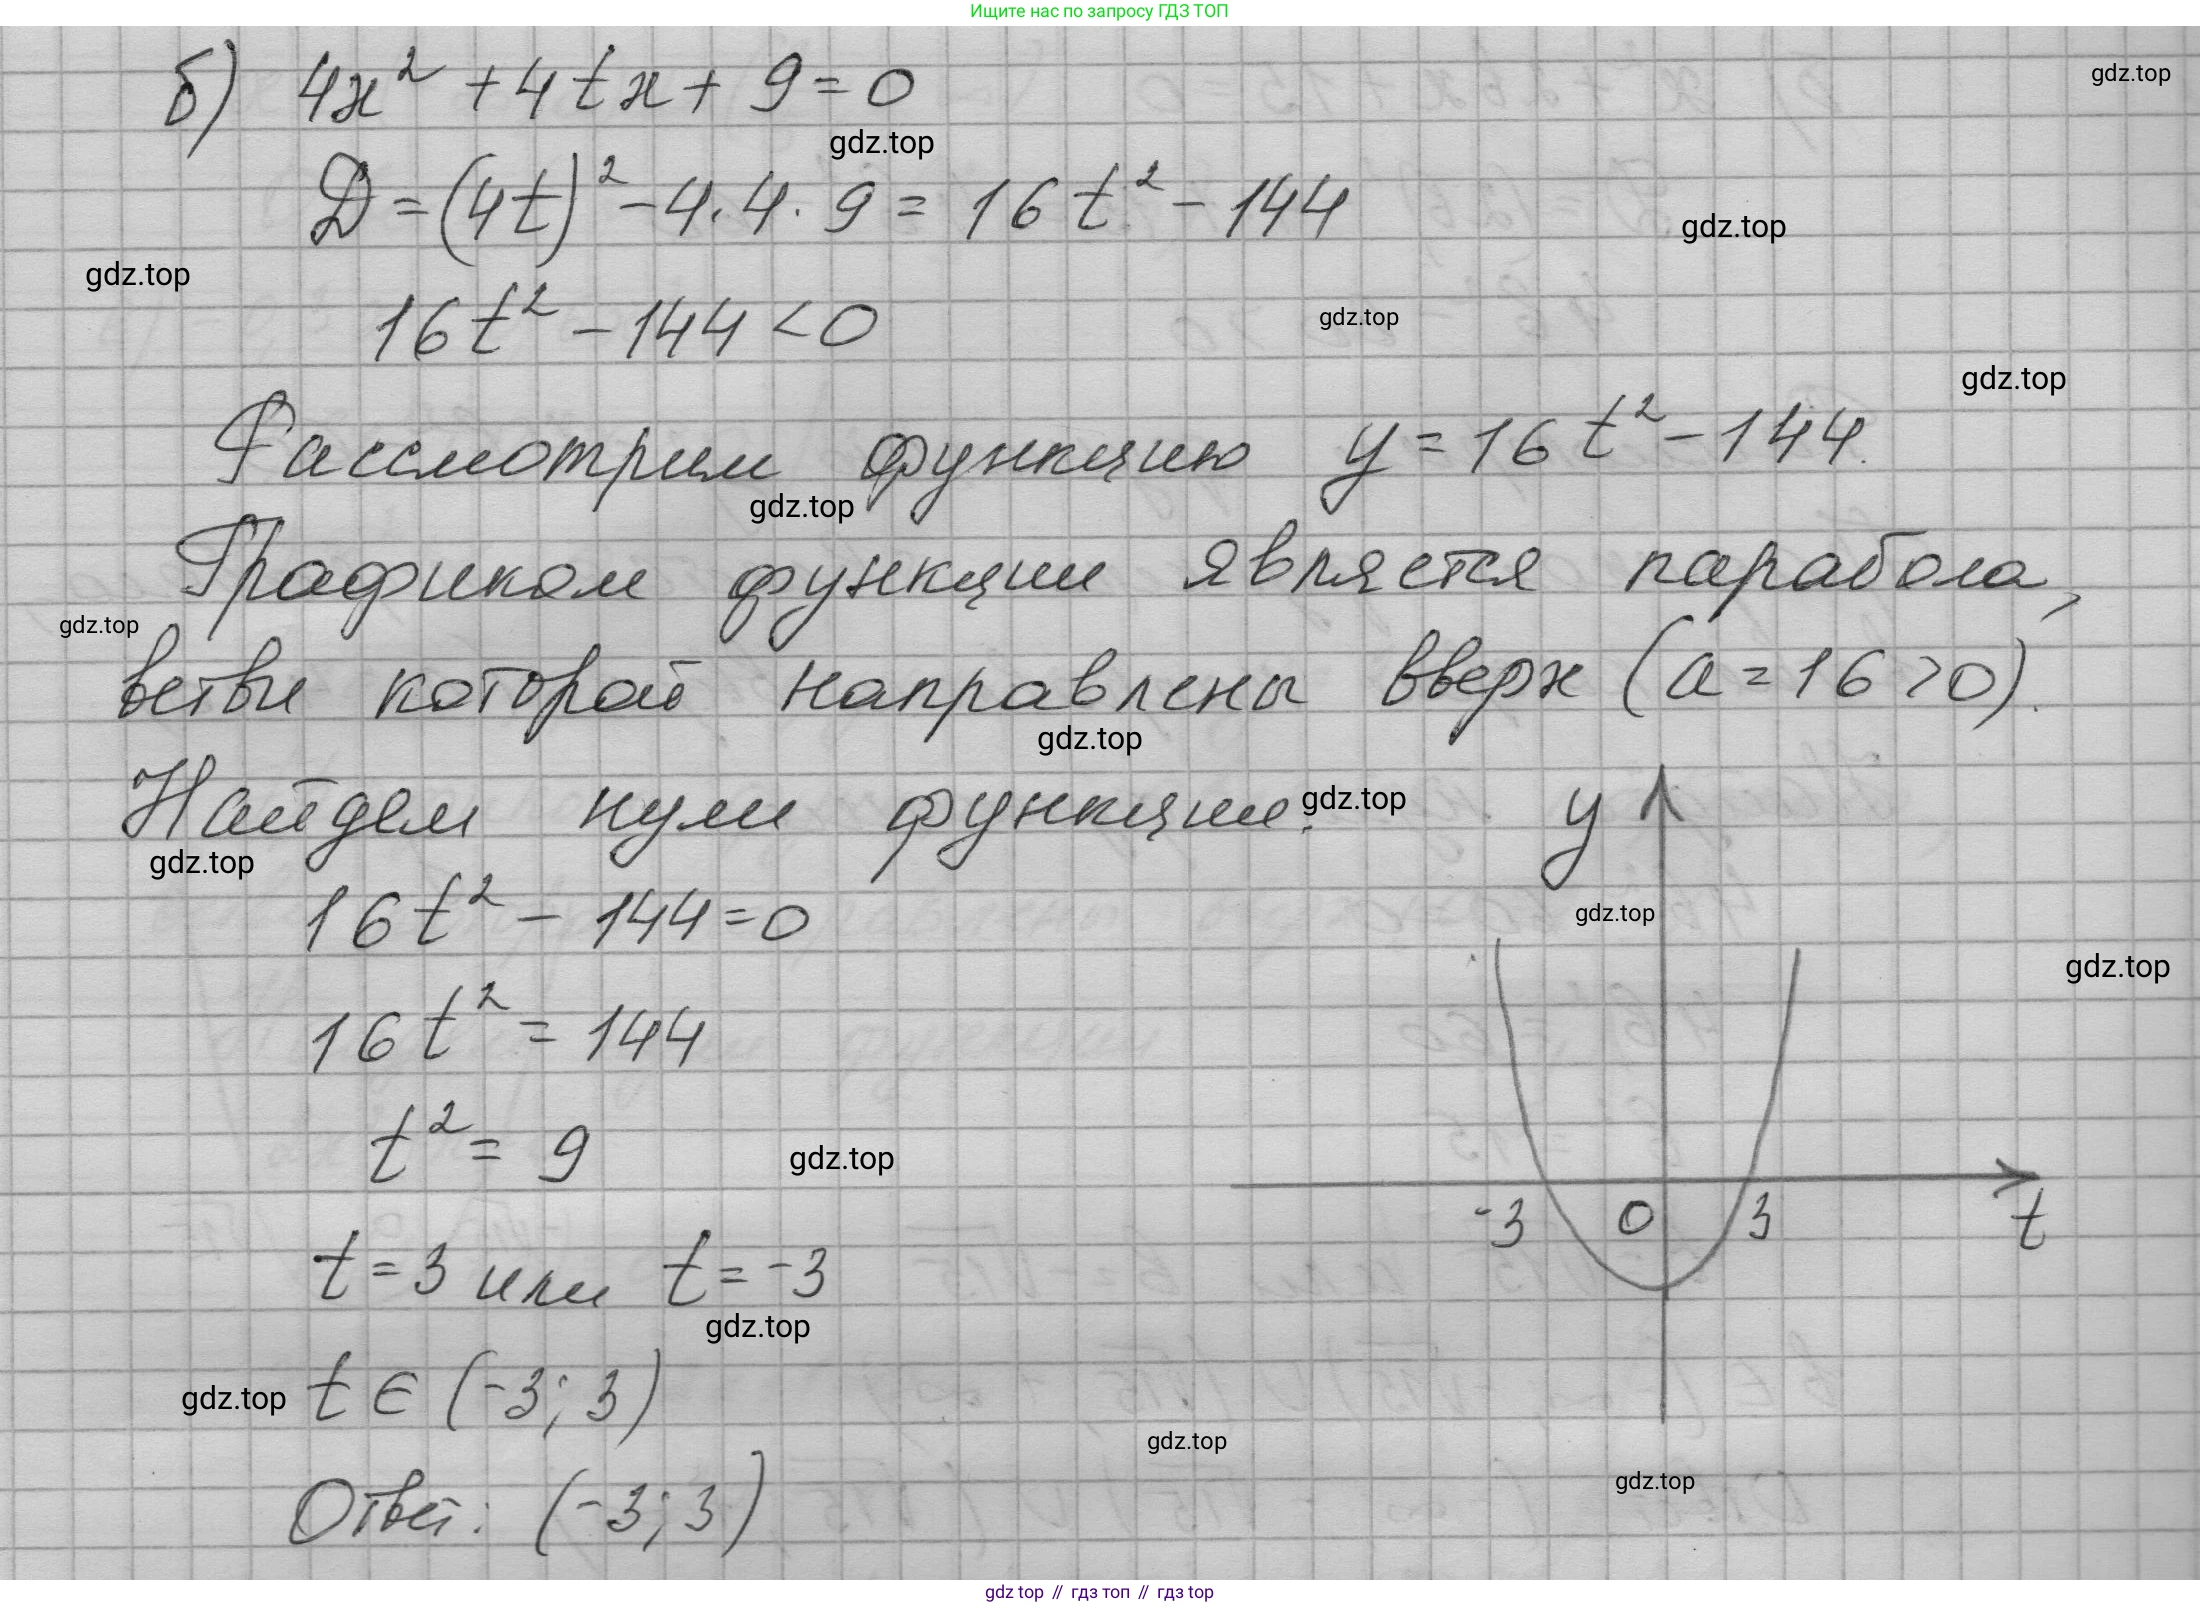 Ищите нас по запросу ГДЗ ТОП
б) 4x² + 4tx + 9 = 0
gdz.top
gdz.top
D = (4t)² - 4 · 4 · 9 = 16t² - 144
gdz.top
gdz.top
16t² - 144 < 0
gdz.top
gdz.top
Рассмотрим функцию y = 16t² - 144.
gdz.top
Графиком функции является парабола,
gdz.top
ветви которой направлены вверх (a = 16 > 0).
gdz.top
Найдем нули функции:
gdz.top
y
gdz.top
16t² - 144 = 0
gdz.top
gdz.top
16t² = 144
t² = 9
gdz.top
-3 0 3 t
t = 3 или t = -3
gdz.top
gdz.top
t ∈ (-3; 3)
gdz.top
gdz.top
Ответ: (-3; 3)
gdz top // гдз топ // гдз top